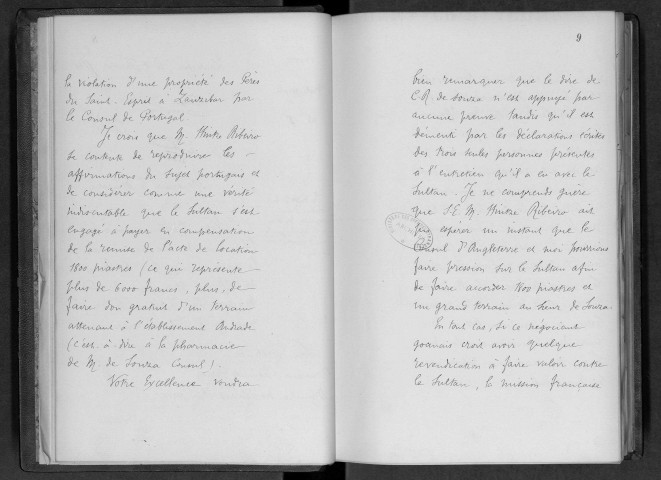 la violation d'une propriété des Pères
du Saint-Esprit à Zanzibar par
le Consul de Portugal.
Je crois que M. Hintze Ribeiro
se contente de reproduire les
affirmations du sujet portugais et
de considérer comme une vérité
indiscutable que le Sultan s'est
engagé à payer en compensation
de la remise de l'acte de location
1800 piastres (ce qui représente
plus de 6000 francs, plus, de
faire don gratuit d'un terrain
attenant à l'établissement Andrade
(c'est-à-dire à la pharmacie
de M. de Souza Consul).
Votre Excellence voudra
9
bien remarquer que le dire de
C.R. de Souza n'est appuyé par
aucune preuve tandis qu'il est
démenti par les déclarations écrites
des trois seules personnes présentes
à l'entretien qu'il a eu avec le
Sultan. Je ne comprends guère
que S.E. M. Hintze Ribeiro ait
pu espérer un instant que le
Consul d'Angleterre et moi pourrions
faire pression sur le Sultan afin
de faire accorder 1800 piastres et
un grand terrain au Sieur de Souza.
En tout cas, si ce négociant
goanais croit avoir quelque
revendication à faire valoir contre
le Sultan, la mission française